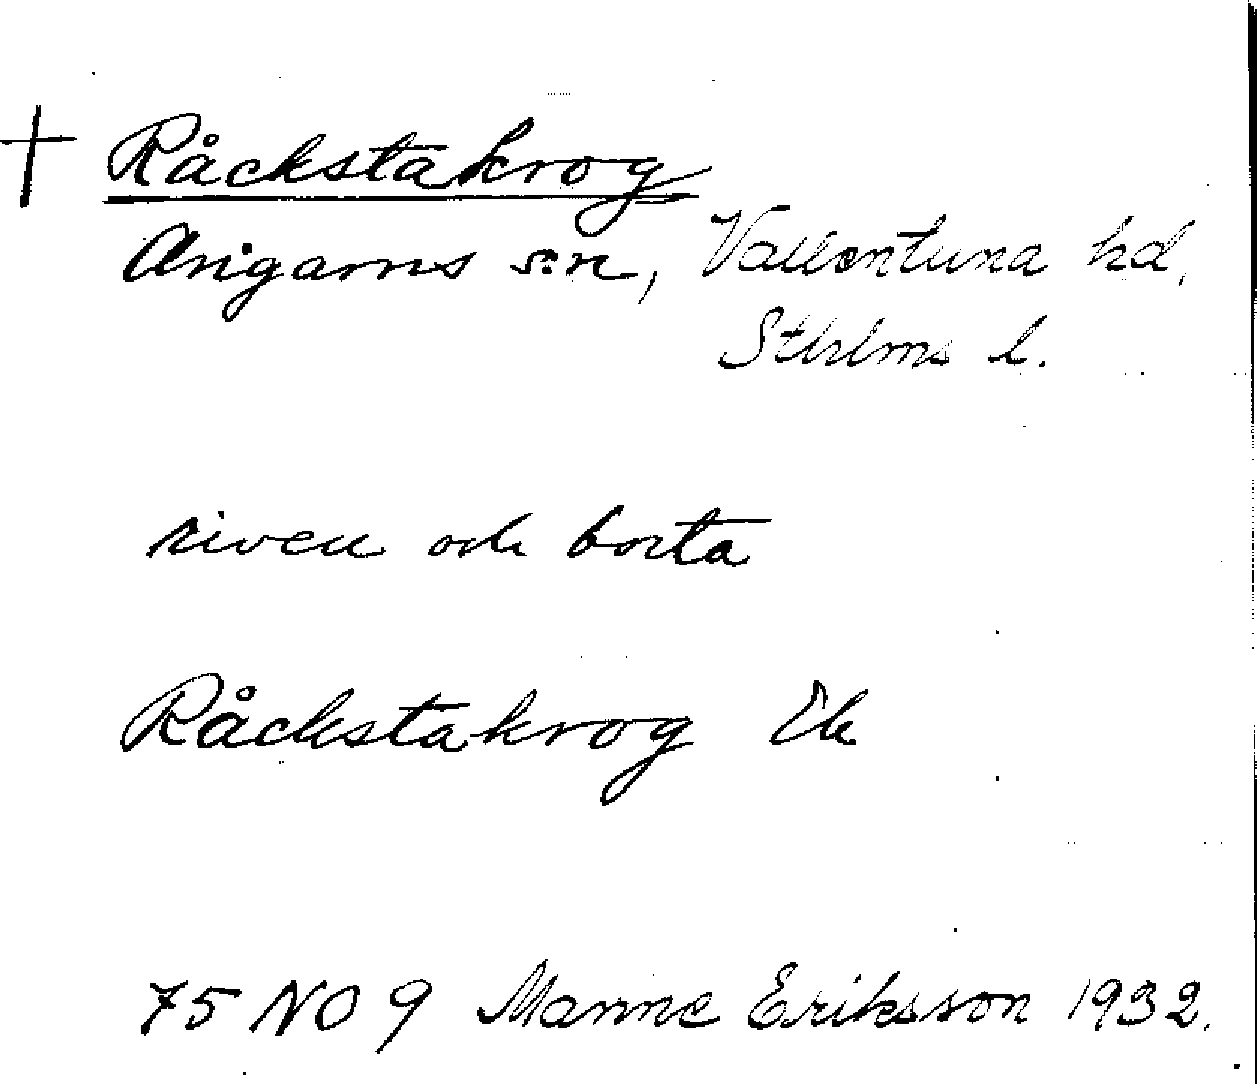 † Råckstakrog
Angarns s:n, Vallentuna hd,
Sthlms l.
riven och borta
Råckstakrog
75 NO 9 Manne Eriksson 1932.